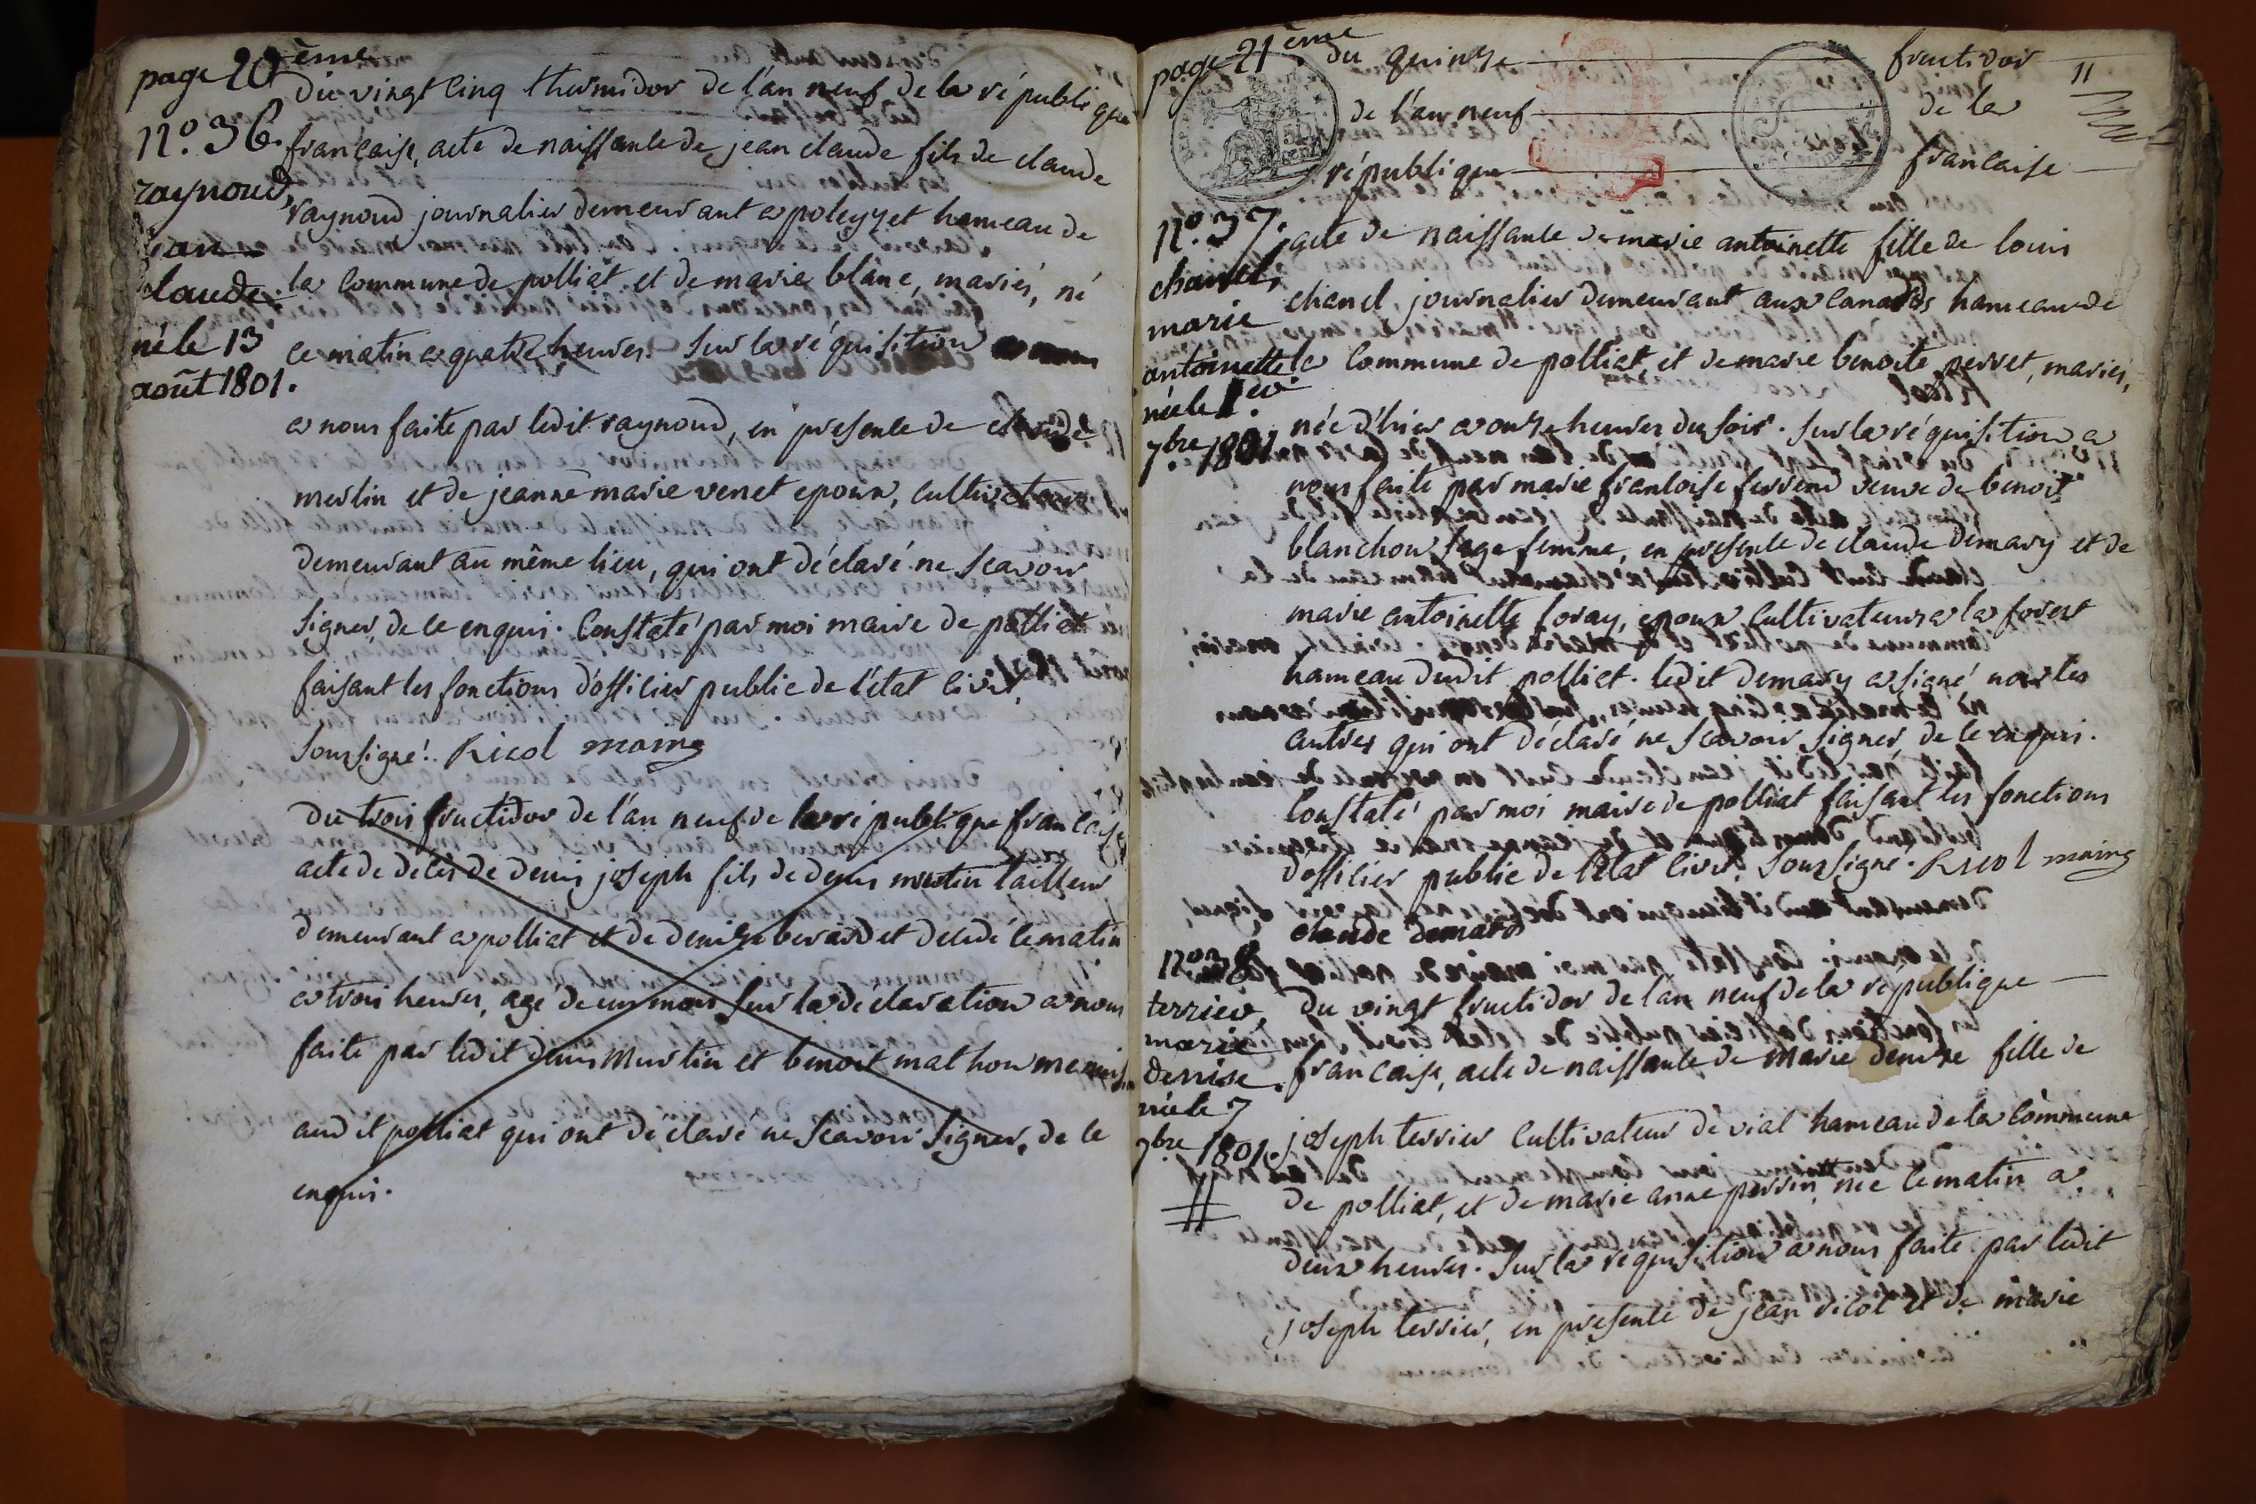 page 20 ème
du vingt cinq thermidor de l'an neuf de la république
n.º 36.
française, acte de naissance de jean claude fils de claude
raynoud,
raynoud journalier demeurant a poleyzet hameau de
jean
claude.
la commune de polliat et de marie blanc, mariés, né
né le 13
ce matin a quatre heures. Sur la réquisition
août 1801.
a nous faite par ledit raynoud, en presence de claude
merlin et de jeanne marie venet epoux, cultivateurs
demeurant au même lieu, qui ont déclaré ne scavoir
signer, de ce enquis. Constaté par moi maire de polliat
faisant les fonctions d'officier public de l'état civil,
soussigné. Ricol maire
du trois fructidor de l'an neuf de la république française
acte de décès de denis joseph fils de denis murtin tailleur
demeurant a polliat et de denise berard et décédé ce matin
a trois heures, age de un mois sur la declaration a nous
faite par ledit denis Murtin et benoit mathou
audit polliat qui ont déclaré ne scavoir signer, de ce
enquis.
page 21 ème
du quinze fructidor
11
de l'an neuf de la
république française
n.º 37.
acte de naissance de marie antoinette fille de louis
chanel,
chanel, journalier demeurant aux canards hameau de
marie
antoinette
la commune de polliat, et de marie benoite perret, mariés,
née le 1er.
née d'hier a onze heures du soir. Sur la réquisition a
7bre 1801
nous faite par marie francoise ferrend veuve de benoit
blanchon sage femme, en presence de claude demary et de
marie antoinette foray, epoux cultivateurs a la forest
hameau dudit polliat. ledit demary a signé non les
autres qui ont déclaré ne scavoir signer, de ce enquis.
Constaté par moi maire de polliat faisant les fonctions
d'officier public de l'état civil, soussigné. Ricol maire
claude demary
n.º 38
du vingt fructidor de l'an neuf de la république
terrier,
marie
française, acte de naissance de marie denise fille de
denise.
née le 7
joseph terrier cultivateur de vial hameau de la commune
7bre 1801.
de polliat, et de marie anne perrin, née ce matin a
deux heures. Sur la requisition a nous faite par ledit
joseph terrier, en presence de jean ricol et de marie